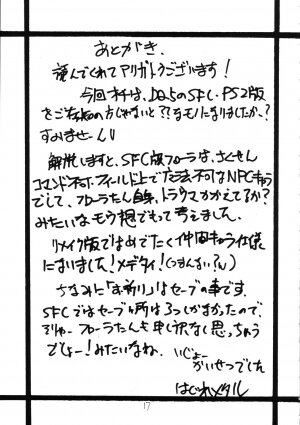 あとがき
読んでくれてアリガトウございます!
今回オチは、DQ5のSFC・PS2版
をご存知の方じゃないと??なモノになりましたか…?
すみませーん
解説しますと、SFC版フローラは、さくせん
コマンド不可、フィールド上で会話不可なNPCキャラ
でして、フローラたん自身、トラウマかかえてるか?
みたいなもう想でもって考えました。
リメイク版ではめでたく仲間キャラ仕様
になりました!メデタイ!(つまんない?ん)
ちなみに「お祈り」はセーブの事です。
SFCではセーブヶ所は3つしかなかったので、
そりゃーフローラたんも申し訳なく思っちゃう
でしょー!みたいなね。
いじょー
かいせつでした
はぐれメタル
17